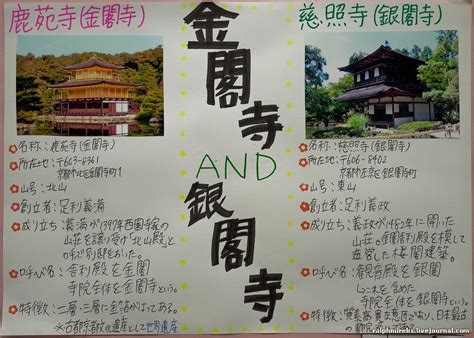 鹿苑寺(金閣寺)
名称:鹿苑寺(金閣寺)
所在地:〒603-8361
京都市北区金閣寺町1
山号:北山
創立者:足利義満
成り立ち:義満が1397年西園寺家の
山荘を譲り受け「北山殿」と
呼ぶ別邸をおいた。
呼び名:舎利殿を金閣
寺院全体を金閣寺という。
特徴:二層・三層に金箔がはってある。
※古都京都文化遺産として世界遺産
金閣寺
AND
銀閣寺
慈照寺(銀閣寺)
名称:慈照寺(銀閣寺)
所在地:〒606-8402
京都市左京区銀閣寺町
山号:東山
創立者:足利義政
成り立ち:義政が1482年に開いた
山荘。金閣舎利殿を模して
造営した楼閣建築。
呼び名:観音殿を銀閣
これを含めた
寺院全体を銀閣寺という。
特徴:
であり、日本最古
ralphmirebs.livejournal.com